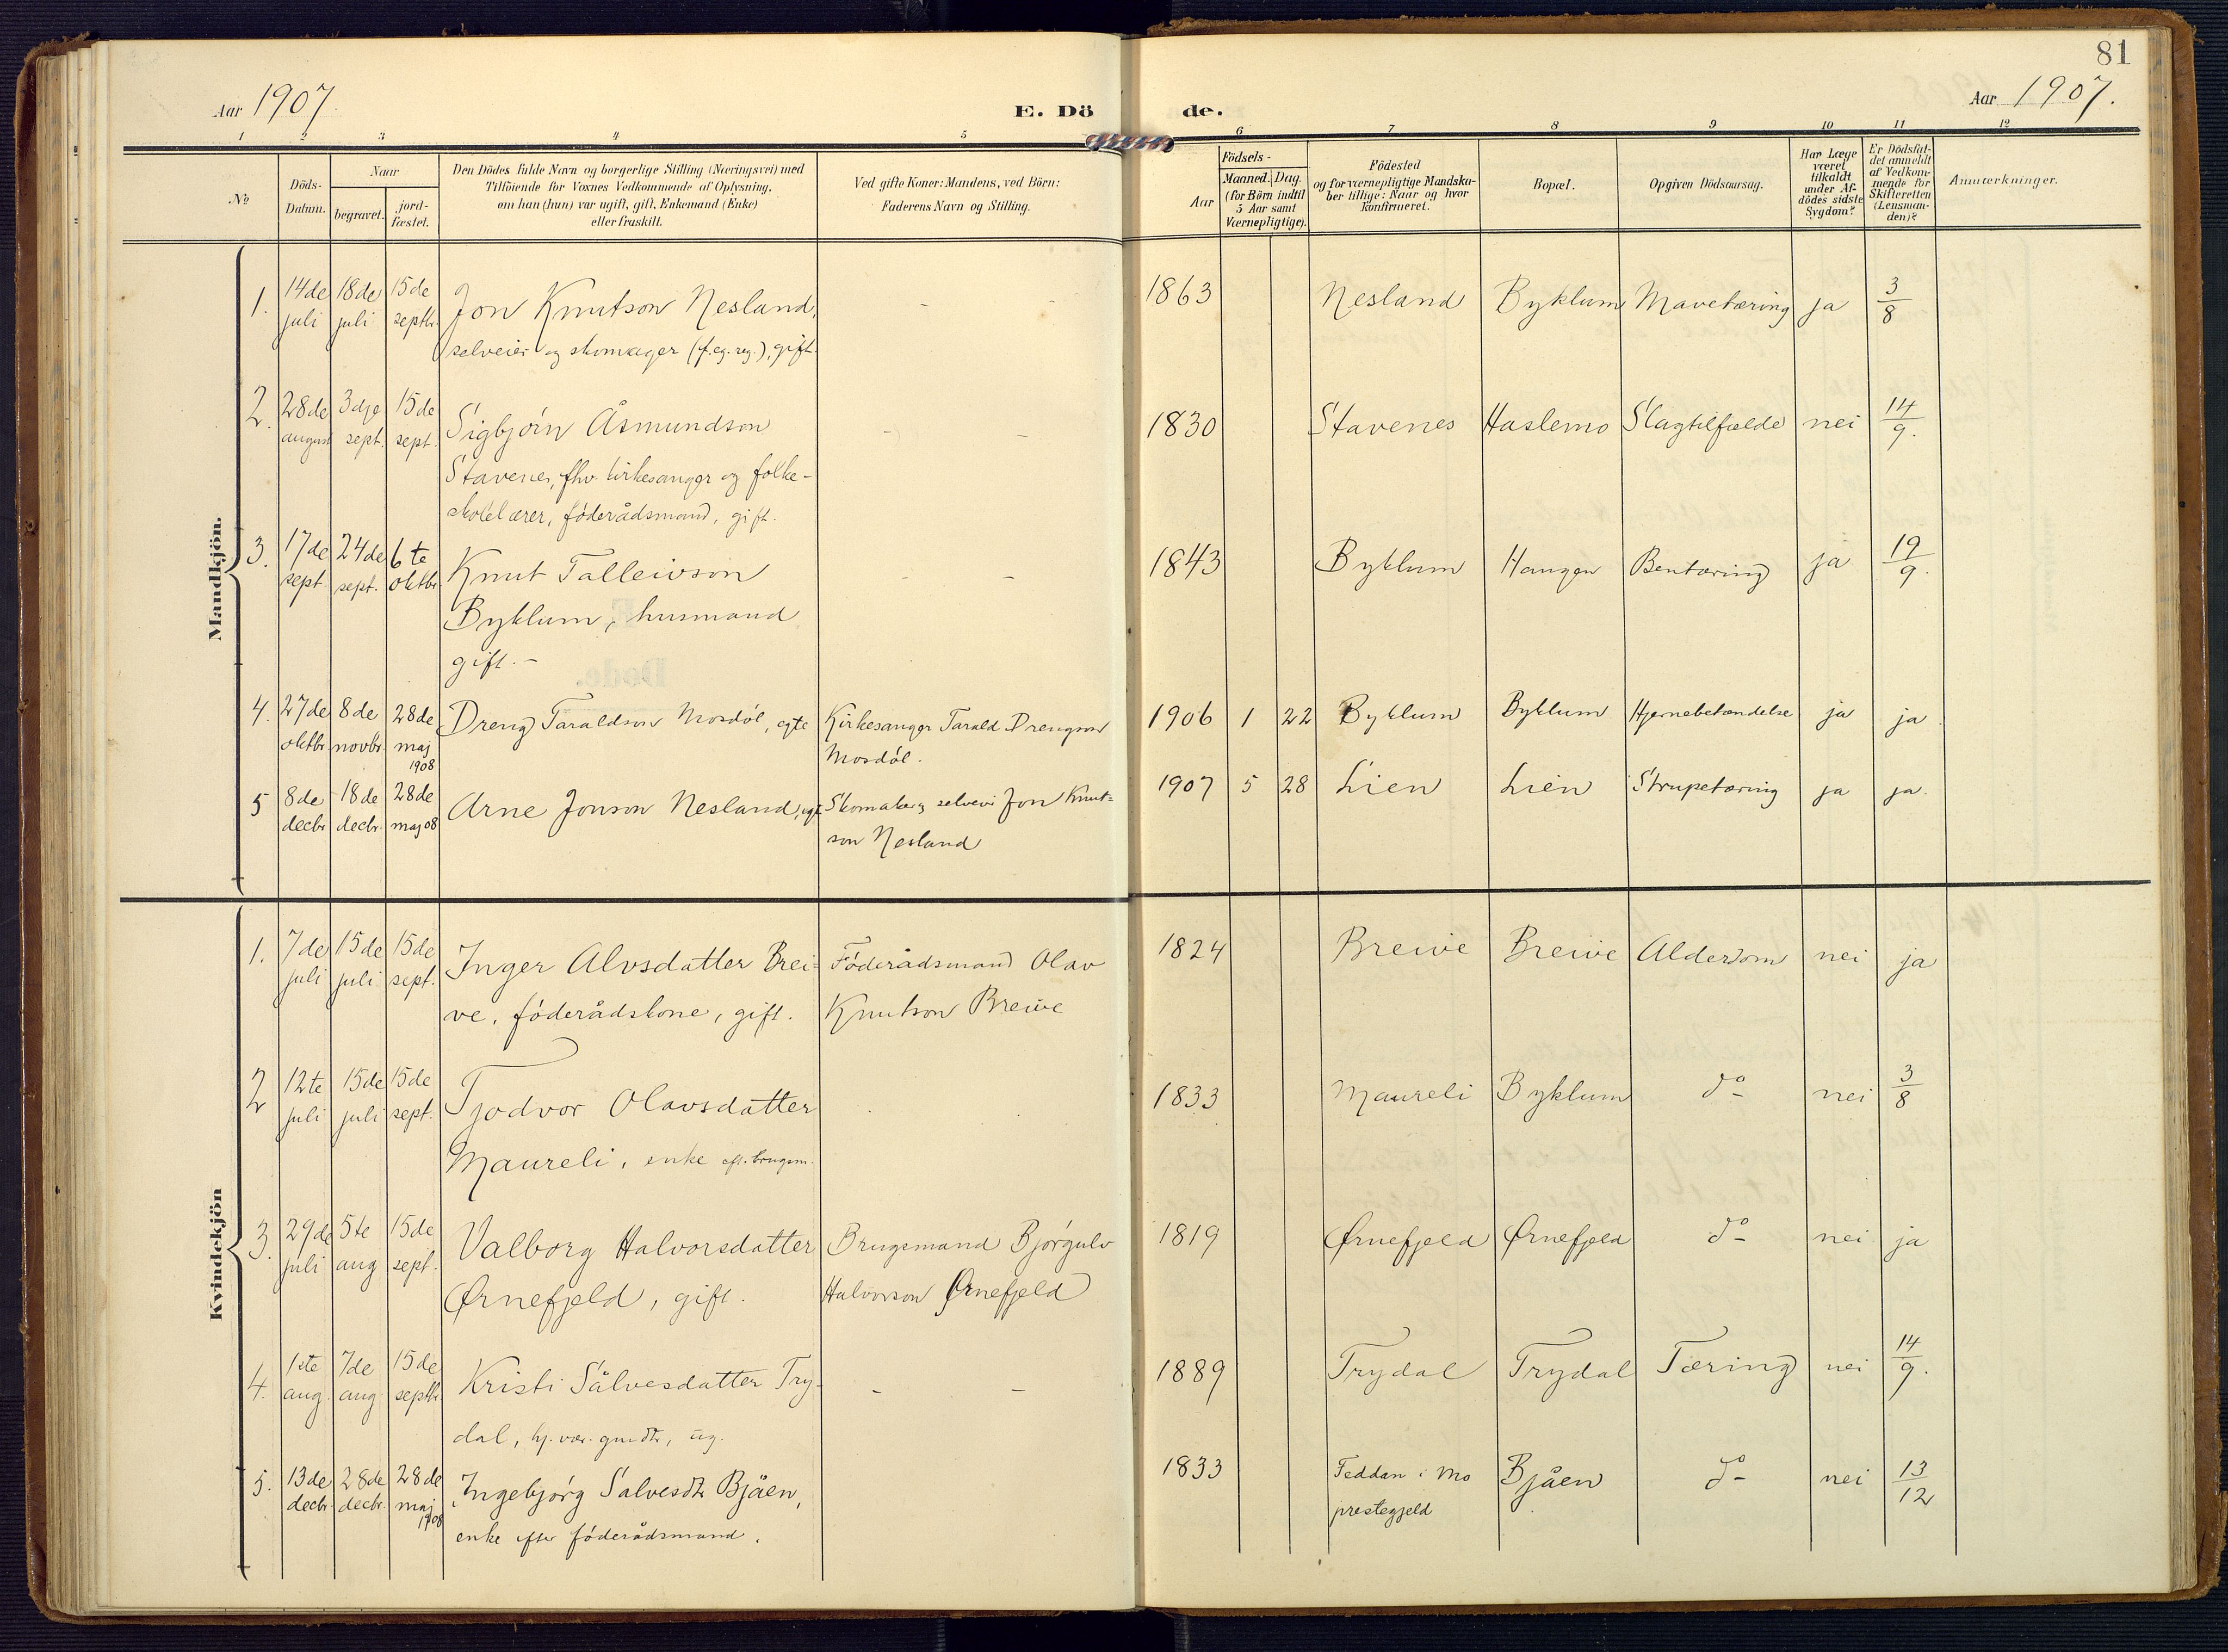 81
Aar 1907.
E. Dö
de.
Aar 1907.
1 2 3 4 5 6 7 8 9 10 11 12
No
Döds-
Datum.
Naar
begravet.
jord-
fæstet.
Den Dödes fulde Navn og borgerlige Stilling (Næringsvei) med
Tilföiende for Voxnes Vedkommende af Oplysning,
om han (hun) var ugift, gift, Enkemand (Enke)
eller fraskilt.
Ved gifte Koner: Mandens, ved Börn:
Faderens Navn og Stilling.
Födsels-
Aar
Maaned. Dag.
(for Börn indtil
5 Aar samt
Værnepligtige).
Födested
og for værnepligtige Mandska-
ber tillige: Naar og hvor
konfirmeret.
Bopæl.
Opgiven Dödsaarsag.
Har Læge
været
tilkaldt
under Af-
dödes sidste
Sygdom?
Er Dödsfal-
det anmeldt
af Vedkom-
mende for
Skifteretten
(Lensman-
den)?
Anmærkninger.
Mandkjön.
1. 14de juli 18de juli 15de septbr.
Jon Knutson Nesland,
selveier og skomager (f.eg.reg.), gift.
- - 1863 Nesland Byklum Mavetæring ja 3/8
2. 28de august 3dje sept. 15de sept.
Sigbjörn Åsmundson
Stavenes, fhv. kirkesanger og folke-
skolelærer, föderådsmand, gift.
- - 1830 Stavenes Haslemo Slagtilfælde nei 14/9.
3. 17de sept. 24de sept. 6te oktbr.
Knut Talleivson
Byklum, husmand
gift. -
- - 1843 Byklum Haugen Bentæring ja 19/9.
4. 27de oktbr 8de novbr. 28de maj 1908
Dreng Taraldson Mosdöl, egte
Kirkesanger Tarald Drengson
Mosdöl.
1906 1 22 Byklum Byklum Hjernebetændelse ja ja
5 8de decbr. 18de decbr. 28de maj 08
Arne Jonson Nesland, egt
Skomaker, selveier Jon Knut=
son Nesland
1907 5 28 Lien Lien Strupetæring ja ja.
Kvindekjön
1. 7de juli 15de juli 15de sept.
Inger Alvsdatter Brei=
ve, föderådskone, gift.
Föderådsmand Olav
Knutson Breive
1824 Breive Breive Alderdom nei ja
2 12te juli 15de juli 15de sept.
Tjodvor Olavsdatter
Maureli, enke eft. brugsm.
1833 Maureli Byklum do nei 3/8
3. 29de juli 5te aug 15de sept.
Valborg Halvorsdatter
Ørnefjeld, gift.
Brugsmand Björgulv
Halvorson Ørnefjeld
1819 Ørnefjeld Ørnefjeld do nei ja
4. 1ste aug. 7de aug 15de septbr.
Kristi Sålvesdatter Try-
dal, hj. vær. gmdtr, ug.
- - 1889 Trydal Trydal Tæring nei 14/9.
5. 13de decbr. 28de decbr. 28de maj 1908
Ingebjörg Salvesdtr Bjåen,
enke efter föderådsmand.
1833 Feddan i Mo
prestegjeld
Bjåen do nei 13/12